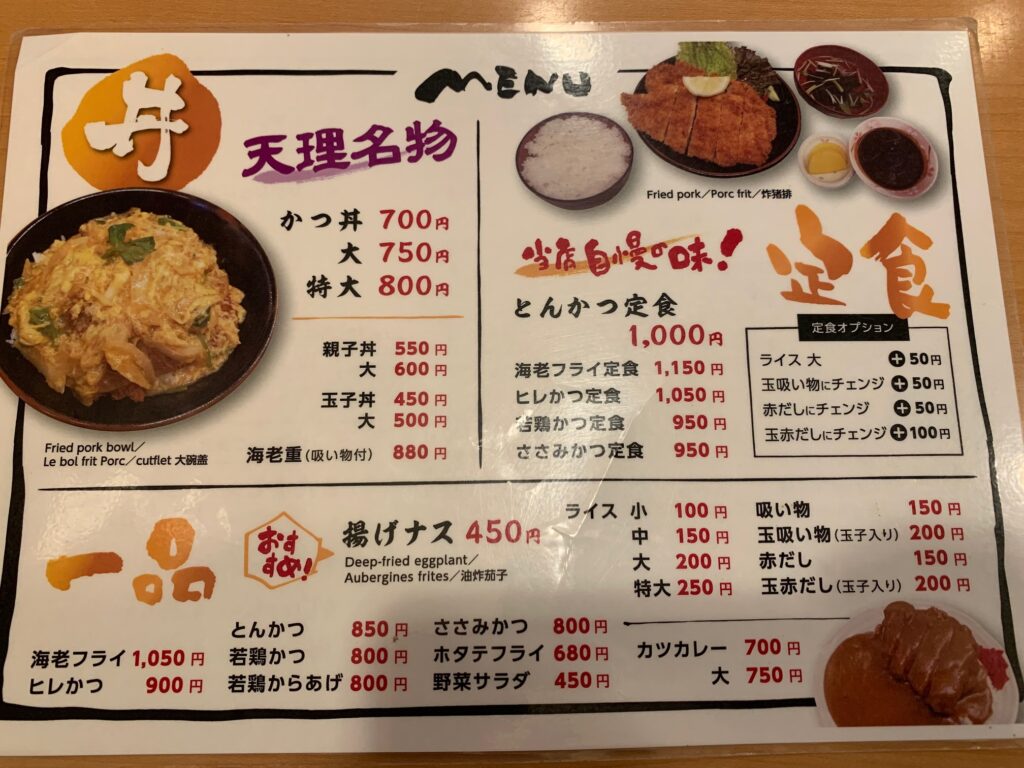 MENU
丼
天理名物
かつ丼 700円
大 750円
特大 800円
親子丼 550円
大 600円
玉子丼 450円
大 500円
海老重(吸い物付) 880円
Fried pork bowl/
Le bol frit Porc/cutflet 大碗盖
Fried pork/Porc frit/炸猪排
当店自慢の味!
定食
とんかつ定食
1,000円
海老フライ定食 1,150円
ヒレかつ定食 1,050円
若鶏かつ定食 950円
ささみかつ定食 950円
定食オプション
ライス 大 +50円
玉吸い物にチェンジ +50円
赤だしにチェンジ +50円
玉赤だしにチェンジ +100円
一品
おすすめ!
揚げナス 450円
Deep-fried eggplant/
Aubergines frites/油炸茄子
ライス 小 100円
中 150円
大 200円
特大 250円
吸い物 150円
玉吸い物(玉子入り) 200円
赤だし 150円
玉赤だし(玉子入り) 200円
海老フライ 1,050円
ヒレかつ 900円
とんかつ 850円
若鶏かつ 800円
若鶏からあげ 800円
ささみかつ 800円
ホタテフライ 680円
野菜サラダ 450円
カツカレー 700円
大 750円